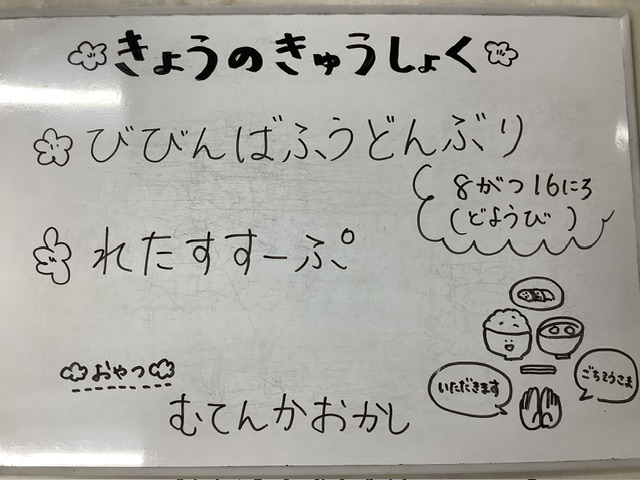 きょうのきゅうしょく
びびんばふうどんぶり
8がつ16にち
(どようび)
れたすすーぷ
おやつ
むてんかおかし
いただきます
ごちそうさま